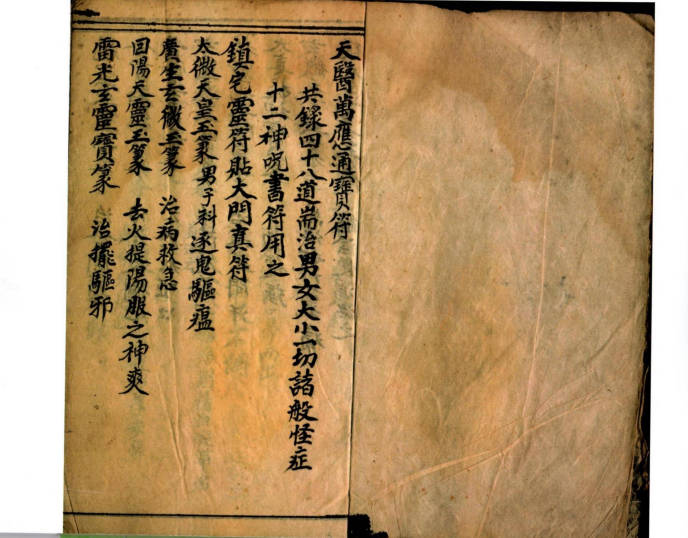 天醫萬應通寶符
共錄四十八道耑治男女大小一切諸般怪症
十二神呪書符用之
鎮宅靈符貼大門真符
太微天皇玉篆 男子科逐鬼驅瘟
廣生玄微玉篆 治病救急
回陽天靈玉篆 去火提陽服之神爽
雷光玄靈寶篆 治擺驅邪